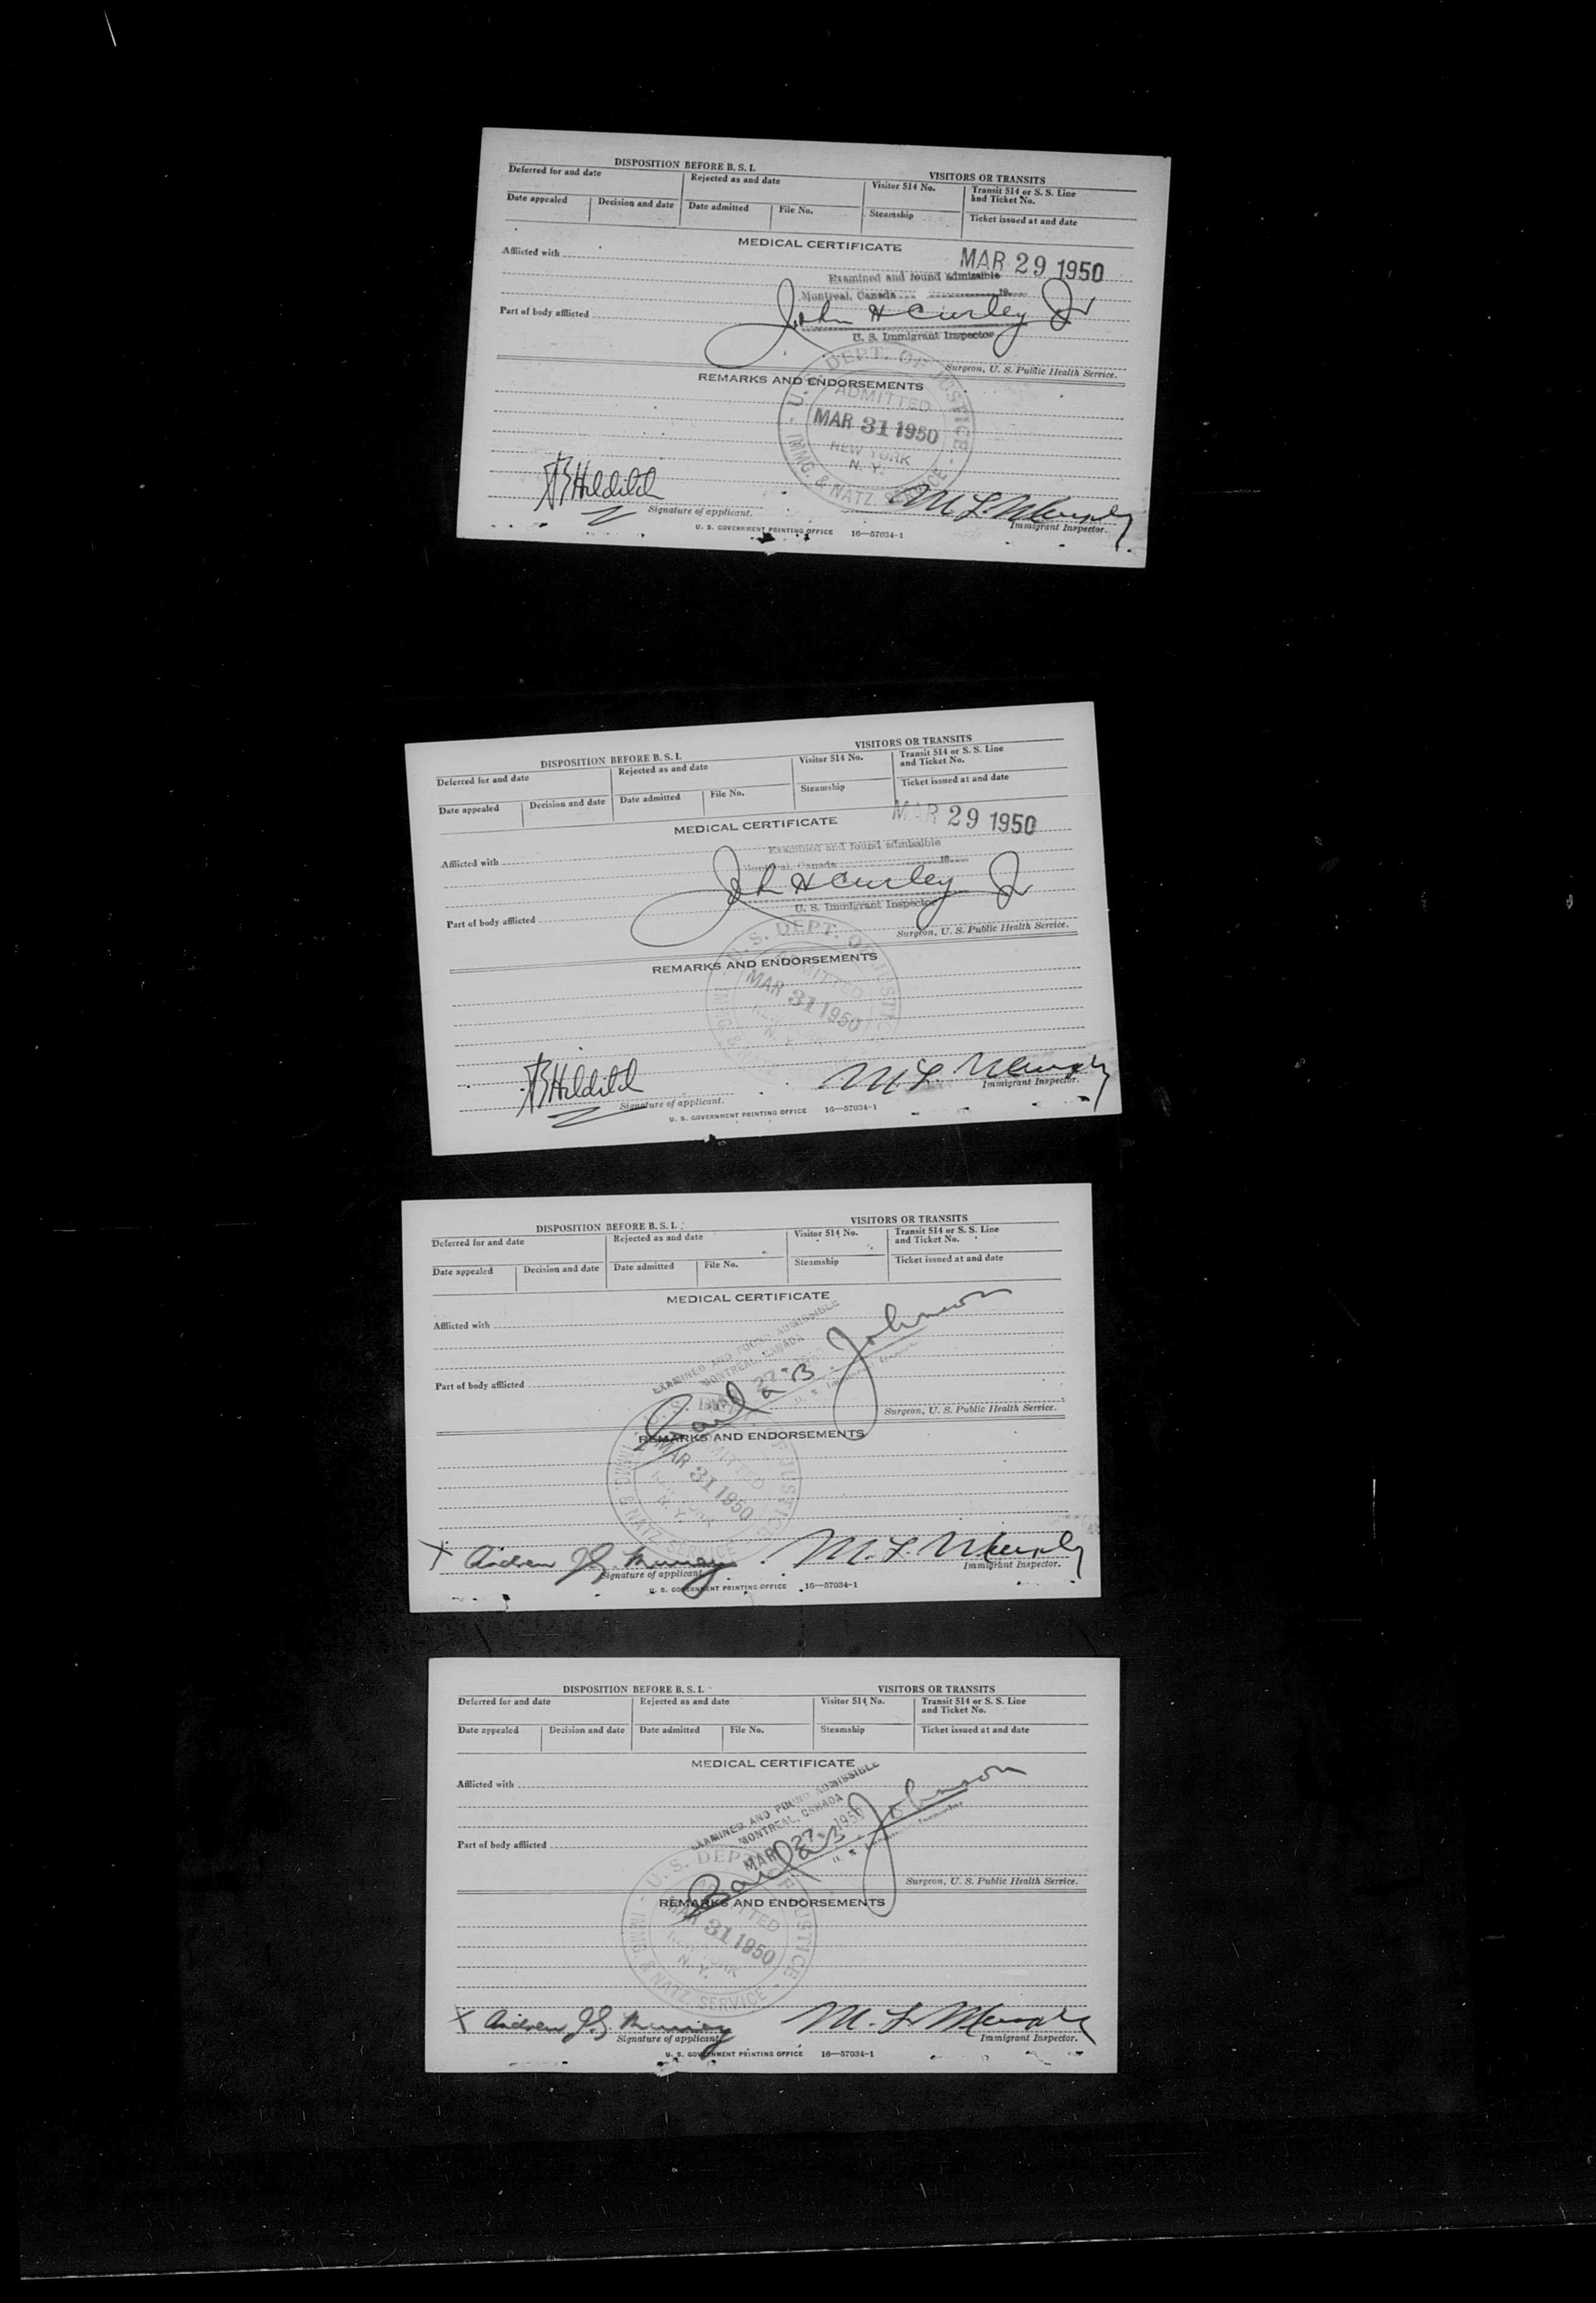 DISPOSITION BEFORE B. S. I.
VISITORS OR TRANSITS
Deferred for and date
Rejected as and date
Visitor 514 No.
Transit 514 or S. S. Line
and Ticket No.
Date appealed
Decision and date
Date admitted
File No.
Steamship
Ticket issued at and date
MEDICAL CERTIFICATE
MAR 29 1950
Afflicted with
Examined and found admissible
Montreal, Canada 19
John H Curley Jr
Part of body afflicted
U. S. Immigrant Inspector
Surgeon, U. S. Public Health Service.
REMARKS AND ENDORSEMENTS
U. S. DEPT. OF JUSTICE
ADMITTED
MAR 31 1950
NEW YORK
N. Y.
IMMG. & NATZ. SERVICE
M. L. Murphy
Signature of applicant.
Immigrant Inspector.
U. S. GOVERNMENT PRINTING OFFICE 16—57034-1
DISPOSITION BEFORE B. S. I.
VISITORS OR TRANSITS
Deferred for and date
Rejected as and date
Visitor 514 No.
Transit 514 or S. S. Line
and Ticket No.
Date appealed
Decision and date
Date admitted
File No.
Steamship
Ticket issued at and date
MEDICAL CERTIFICATE
MAR 29 1950
Afflicted with
Examined and found admissible
Montreal, Canada 19
John H Curley Jr
Part of body afflicted
U. S. Immigrant Inspector
Surgeon, U. S. Public Health Service.
REMARKS AND ENDORSEMENTS
U. S. DEPT. OF JUSTICE
ADMITTED
MAR 31 1950
NEW YORK
N. Y.
IMMG. & NATZ.
M. L. Murphy
Signature of applicant.
Immigrant Inspector.
U. S. GOVERNMENT PRINTING OFFICE 16—57034-1
DISPOSITION BEFORE B. S. I.
VISITORS OR TRANSITS
Deferred for and date
Rejected as and date
Visitor 514 No.
Transit 514 or S. S. Line
and Ticket No.
Date appealed
Decision and date
Date admitted
File No.
Steamship
Ticket issued at and date
MEDICAL CERTIFICATE
Afflicted with
EXAMINED AND FOUND ADMISSIBLE
MONTREAL, CANADA
MAR 27 1950
Paul B. Johnson
U. S. Immigrant Inspector
Part of body afflicted
Surgeon, U. S. Public Health Service.
REMARKS AND ENDORSEMENTS
U. S. DEPT. OF JUSTICE
ADMITTED
MAR 31 1950
NEW YORK
N. Y.
IMMG. & NATZ. SERVICE
X Andrew J. G. Murray
M. L. Murphy
Signature of applicant.
Immigrant Inspector.
U. S. GOVERNMENT PRINTING OFFICE 16—57034-1
DISPOSITION BEFORE B. S. I.
VISITORS OR TRANSITS
Deferred for and date
Rejected as and date
Visitor 514 No.
Transit 514 or S. S. Line
and Ticket No.
Date appealed
Decision and date
Date admitted
File No.
Steamship
Ticket issued at and date
MEDICAL CERTIFICATE
Afflicted with
EXAMINED AND FOUND ADMISSIBLE
MONTREAL, CANADA
MAR 27 1950
Paul B. Johnson
U. S. Immigrant Inspector
Part of body afflicted
Surgeon, U. S. Public Health Service.
REMARKS AND ENDORSEMENTS
U. S. DEPT. OF JUSTICE
ADMITTED
MAR 31 1950
NEW YORK
N. Y.
IMMG. & NATZ. SERVICE
X Andrew J. G. Murray
M. L. Murphy
Signature of applicant.
Immigrant Inspector.
U. S. GOVERNMENT PRINTING OFFICE 16—57034-1